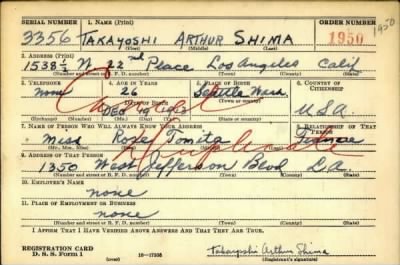 SERIAL NUMBER 1. NAME (Print) ORDER NUMBER
3356 TAKAYOSHI ARTHUR SHIMA 1950 1950
(First) (Middle) (Last)
2. ADDRESS (Print)
1538½ W 22nd Place Los Angeles Calif
(Number and street or R. F. D. number) (Town) (County) (State)
3. TELEPHONE 4. AGE IN YEARS 5. PLACE OF BIRTH 6. COUNTRY OF CITIZENSHIP
none 26 Seattle Wash
DATE OF BIRTH (Town or county)
DEC U.S.A.
7. NAME OF PERSON WHO WILL ALWAYS KNOW YOUR ADDRESS 8. RELATIONSHIP OF THAT PERSON
Miss Rose Tomita
(Mr., Mrs., Miss) (First) (Middle) (Last)
Duplicate
9. ADDRESS OF THAT PERSON
1350 West Jefferson Blvd L.A.
(Number and street or R. F. D. number) (Town) (County) (State)
10. EMPLOYER'S NAME
none
11. PLACE OF EMPLOYMENT OR BUSINESS
none
(Number and street or R. F. D. number) (Town) (County) (State)
I AFFIRM THAT I HAVE VERIFIED ABOVE ANSWERS AND THAT THEY ARE TRUE.
REGISTRATION CARD
D. S. S. Form 1 16-17105 Takayoshi Arthur Shima
(Registrant's signature)